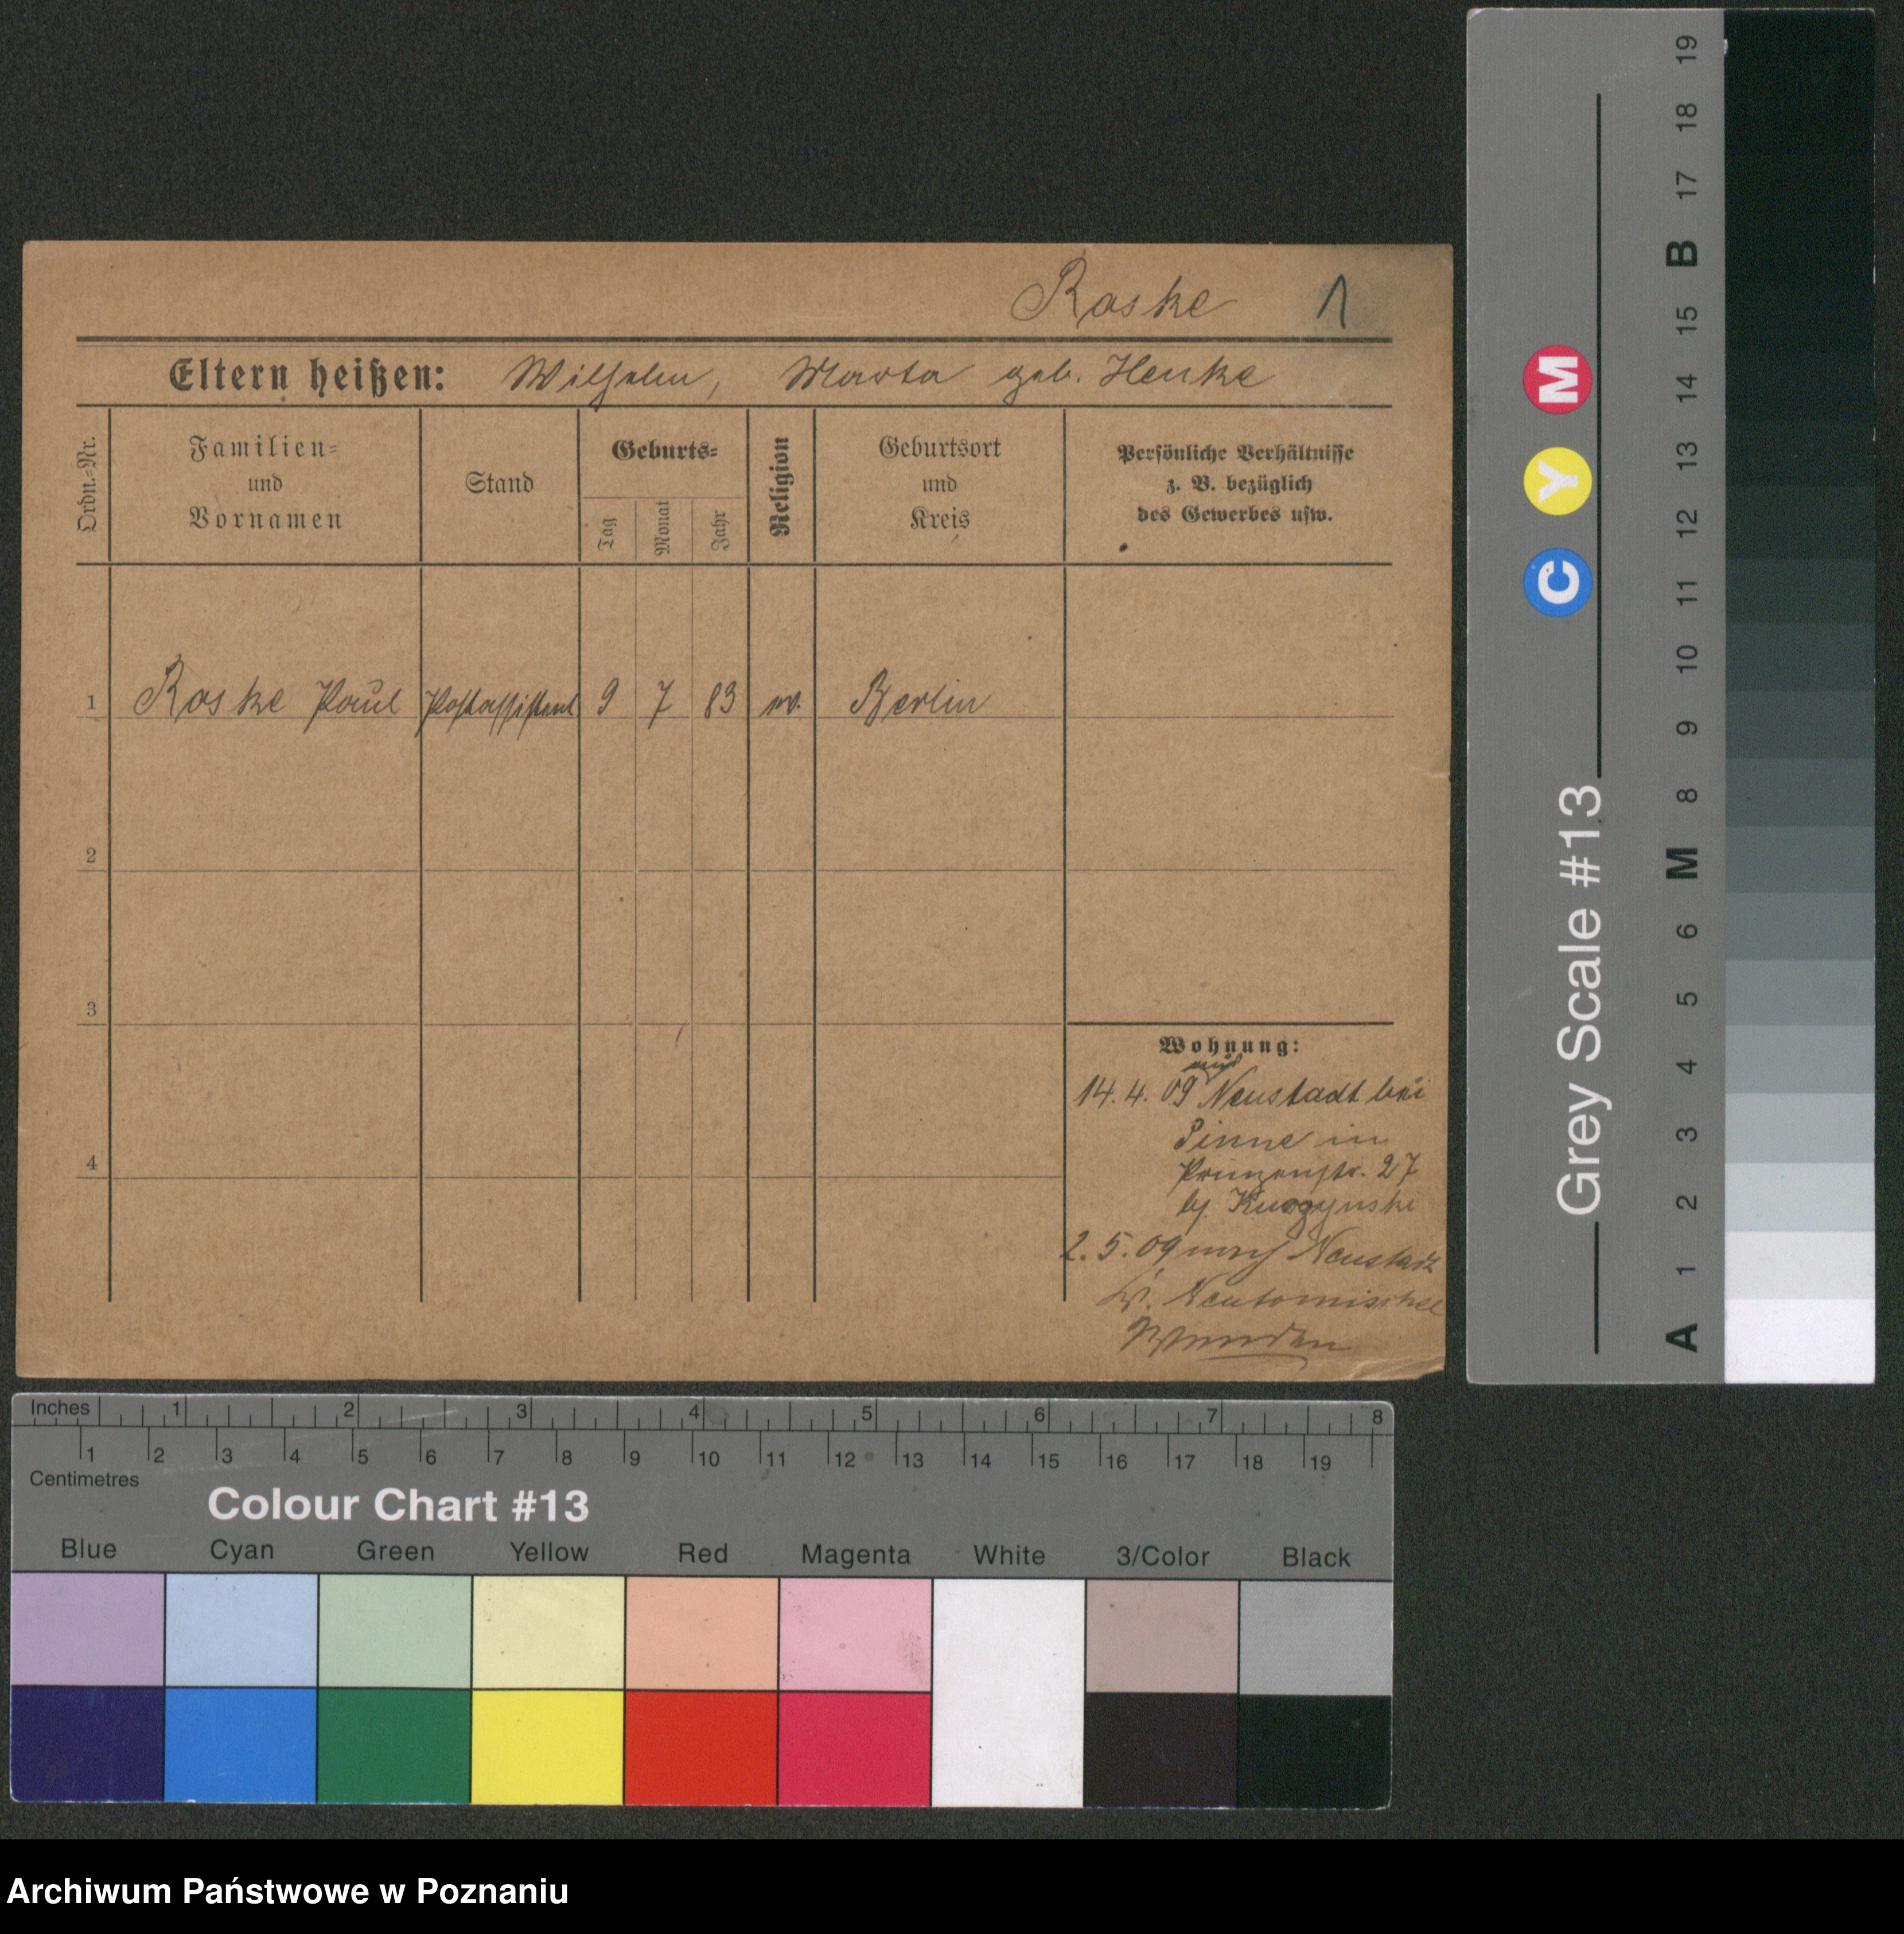 Raske 1
Eltern heißen: Wilhelm, Marta geb. Henke
Ordn.=Nr.
Familien=
und
Vornamen
Stand
Geburts=
Tag
Monat
Jahr
Religion
Geburtsort
und
Kreis
Persönliche Verhältnisse
z. B. bezüglich
des Gewerbes usw.
1 Raske Paul Postassistent 9 7 83 ev. Berlin
2
3
4
Wohnung:
aus
14.4.09 Neustadt bei
Pinne in
Prinzenstr. 27
bj. Kurzynski
2.5.09 nach Neustadt
Kr. Neutomischel
B
19
18
17
B
15
14
13
12
11
10
9
8
M
6
5
4
3
2
1
A
C Y M
Grey Scale #13
Inches 1 2 3 4 5 6 7 8
1 2 3 4 5 6 7 8 9 10 11 12 13 14 15 16 17 18 19
Centimetres
Colour Chart #13
Blue Cyan Green Yellow Red Magenta White 3/Color Black
Archiwum Państwowe w Poznaniu